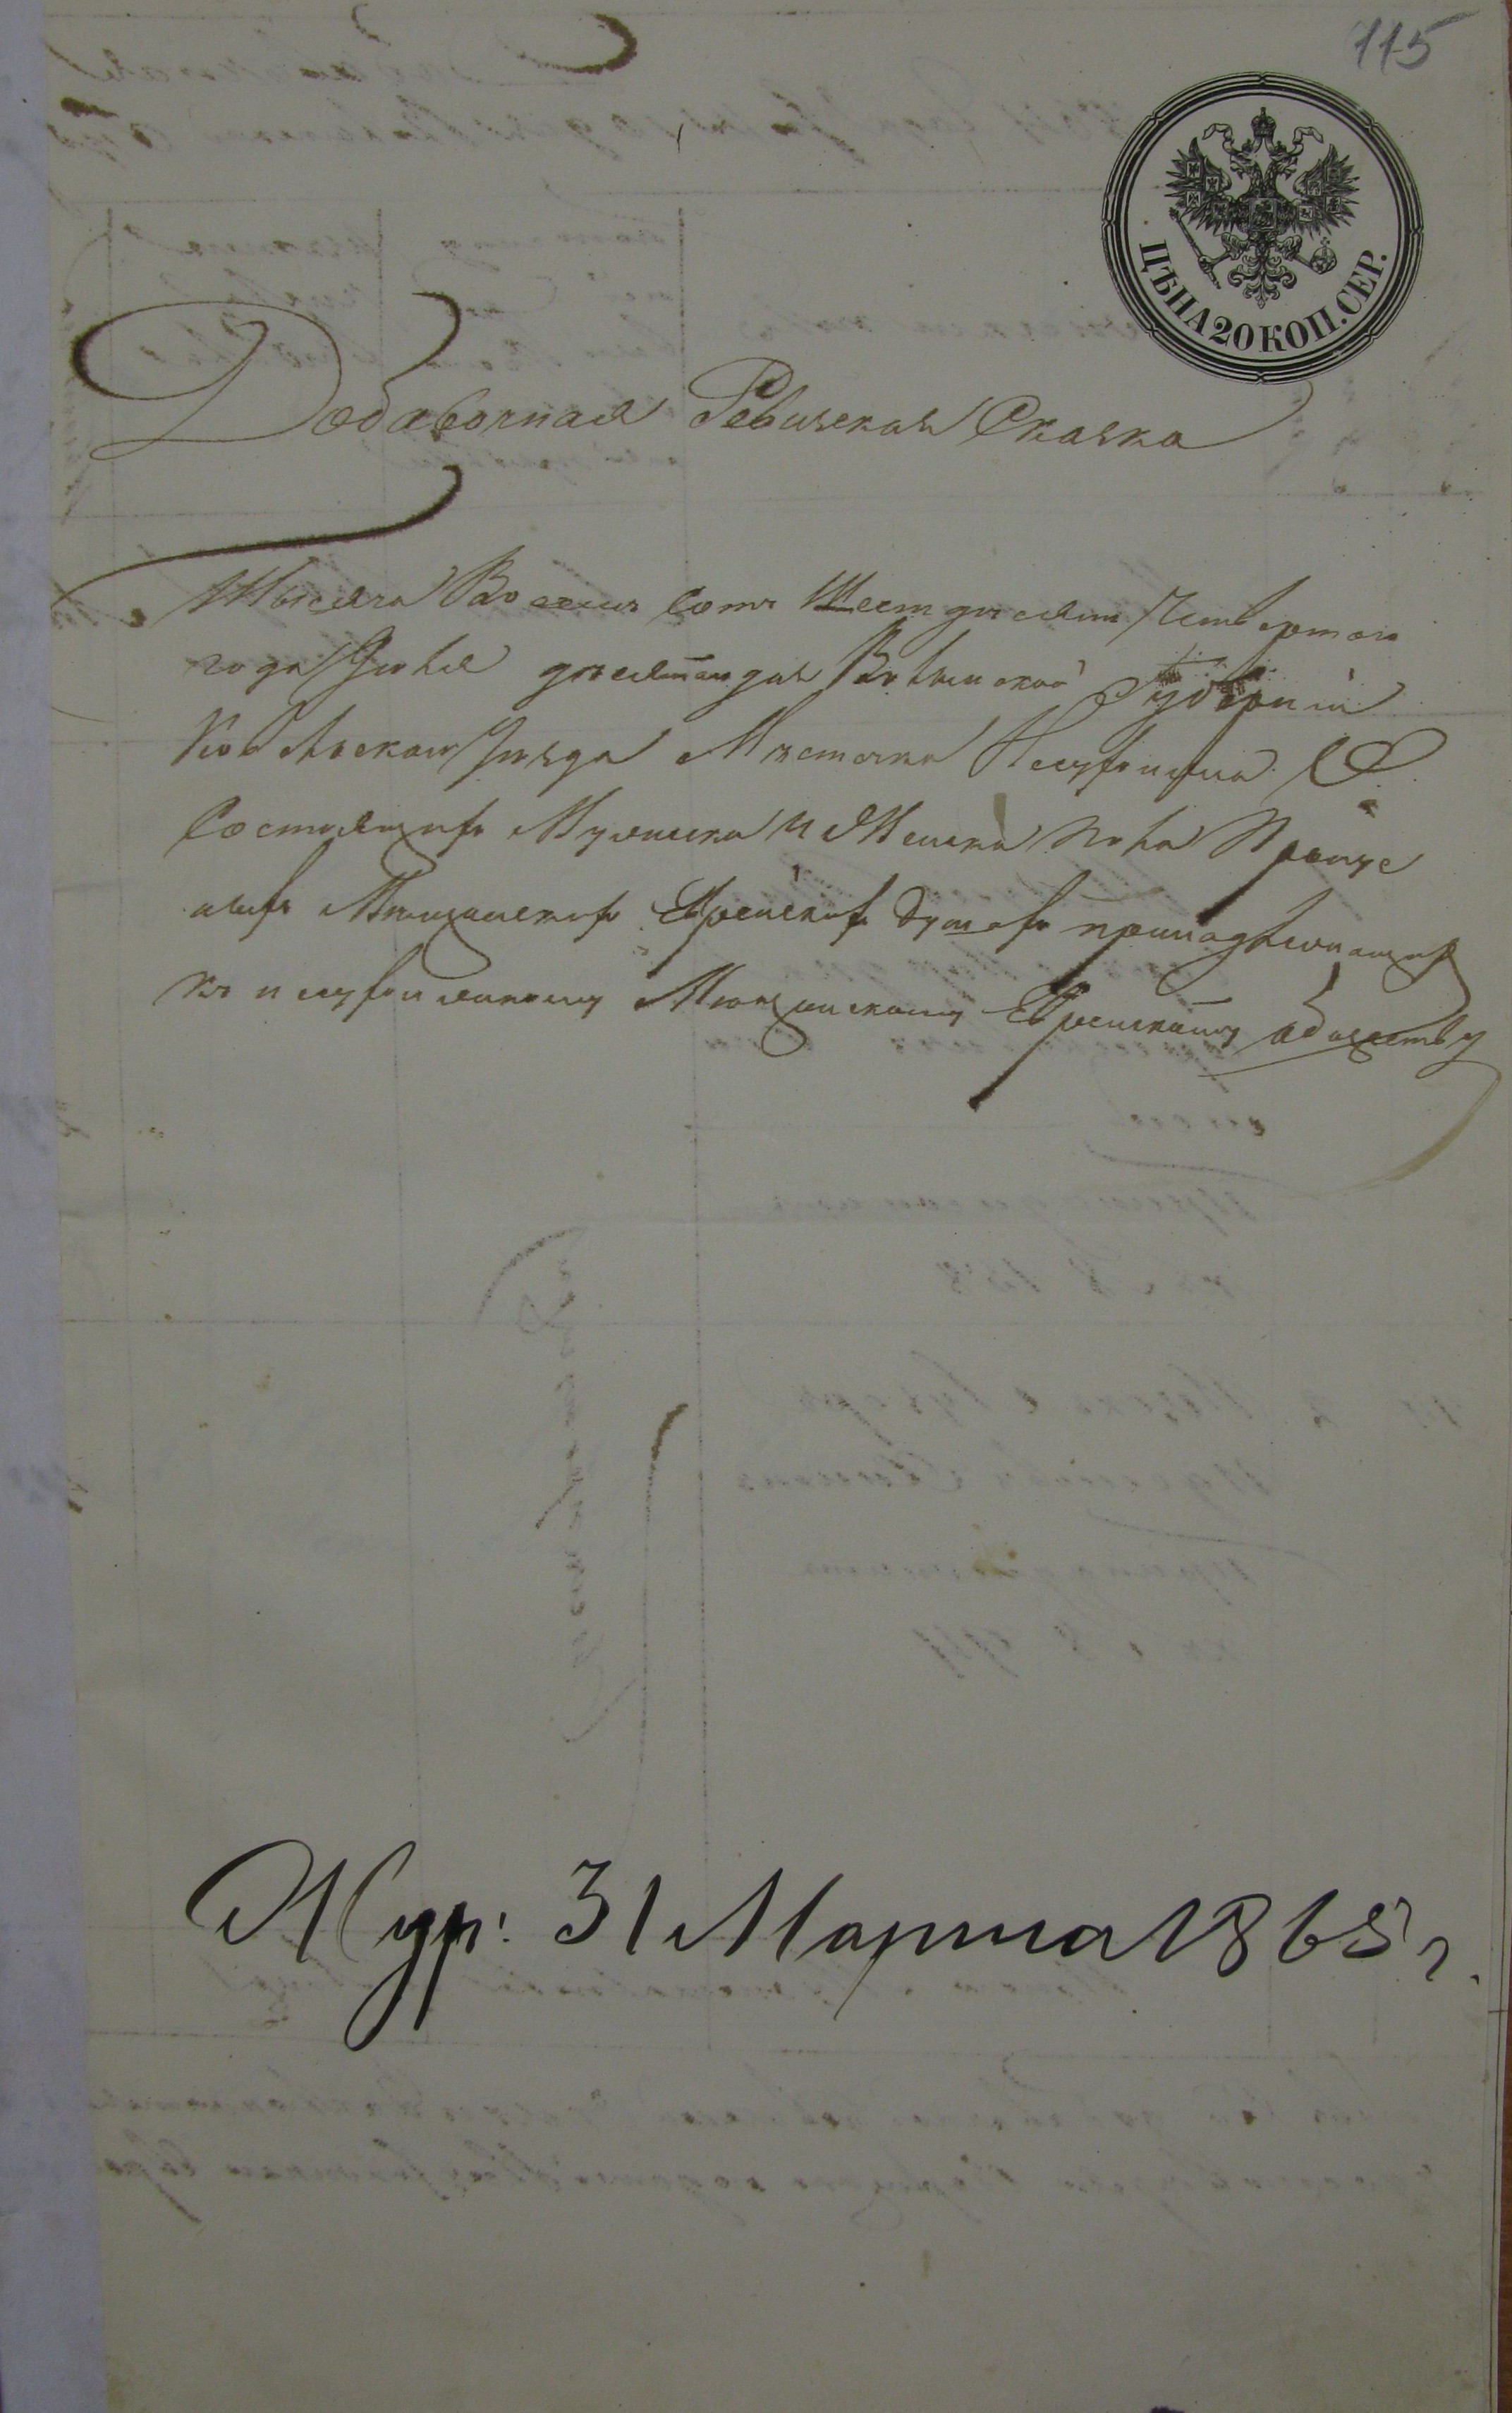 115
ЦѢНА 20 КОП. СЕР.
Добавочная Ревизская Сказка
Тысяча Восемь Сотъ Шестдесят Четвертого
года Июля десятаго дня Волынской Губернии
Ковельскаго Уезда Местечка Несухоижа О
Состоящихъ Мужеска и Женска пола
Мещанскихъ Еврейскихъ душахъ принадлежащихъ
къ несухоижскому Мещанскому Еврейскому обществу
Жур: 31 Марта 1865 г.